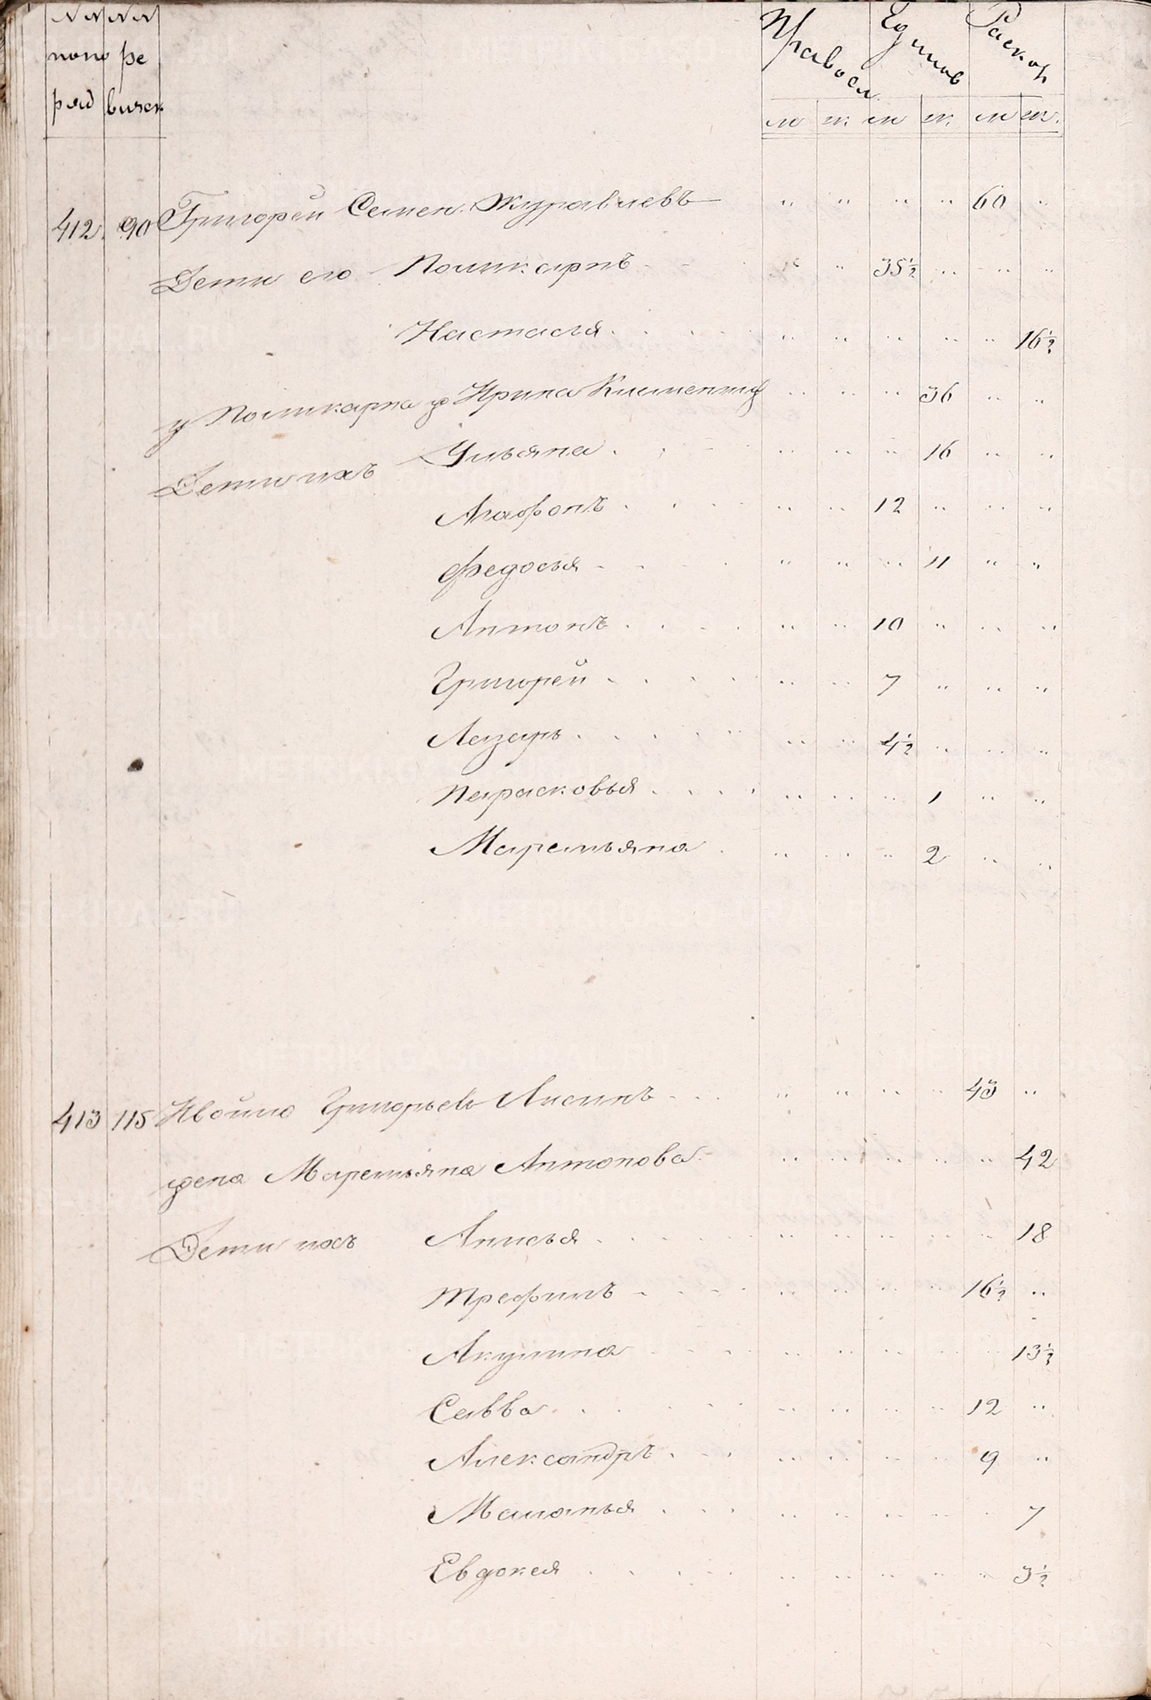 №№ №№ Правосл Единов Раскол
попо ре
ряд визск м ж. м ж. м ж.
412. 90 Григорей Семен. Журавлевъ " " " " 60 "
Дети его Поликарпъ " " 35½ " " "
Настасья " " " " " 16½
у Поликарпа ж Ирина Клименть " " " 36 " "
Дети ихъ Ульяна " " " 16 " "
Агафонъ " " 12 " " "
Федосья " " " 11 " "
Антонъ " " 10 " " "
Григорей " " 7 " " "
Лазарь " " 4½ " " "
Парасковья " " " 1 " "
Маремьяна " " " 2 " "
413 115 Ивойло Григорьевъ " " " " 43 "
жена Маремьяна Антонова " " " " " 42
Дети ихъ Анисья " " " " " 18
Трефилъ " " " " 16½ "
Акулина " " " " " 13½
Савва " " " " 12 "
Александръ " " " " 9 "
Маланья " " " " " 7
Евдокея " " " " " 3½